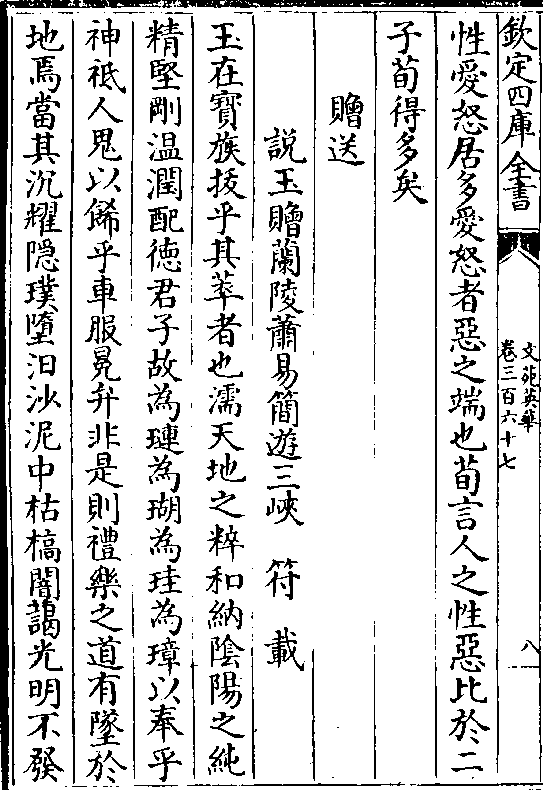 欽定四庫全書
文苑英華
卷三百六十七
八
性愛怒居多愛怒者惡之端也荀言人之性惡比於二
子荀得多矣
贈送
説玉贈蘭陵蕭易簡遊三峽　符載
玉在寳族拔乎其萃者也濡天地之粹和納隂陽之純
精堅剛溫潤配徳君子故為璉為瑚為珪為璋以奉乎
神祗人鬼以餙乎車服冕弁非是則禮樂之道有墜於
地焉當其沉耀隠璞墮汩沙泥中枯槁闇藹光明不發